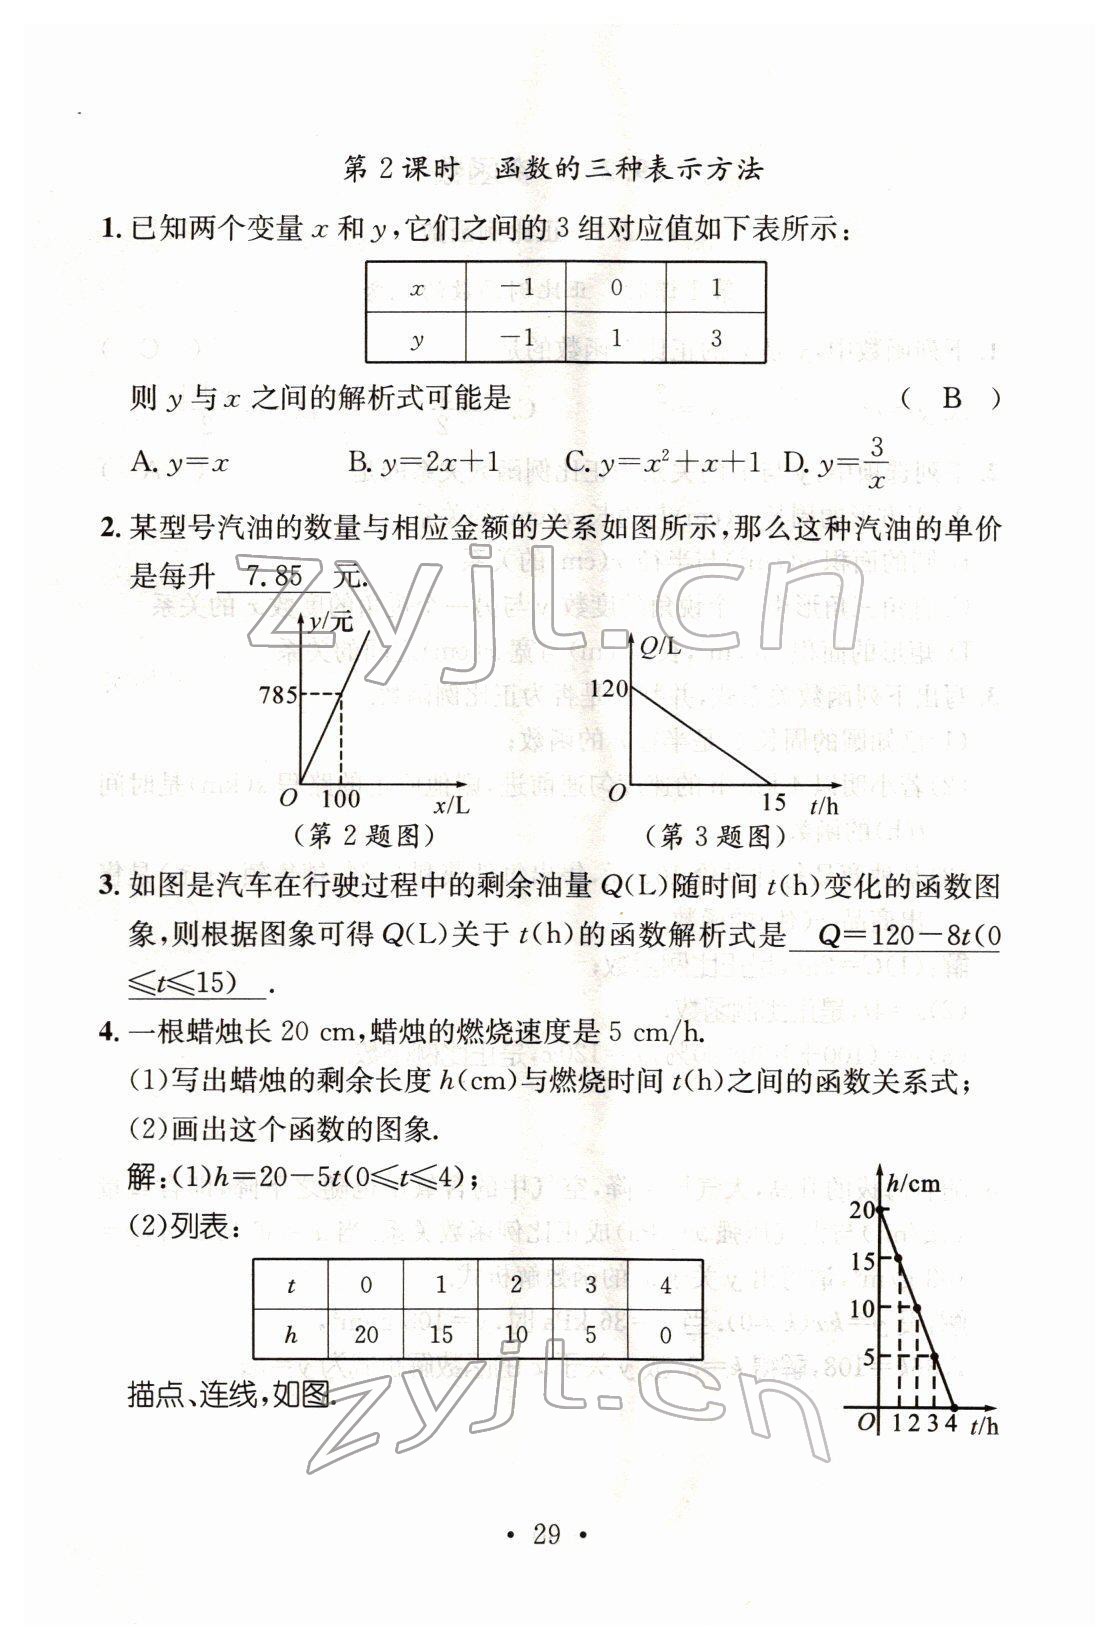 第2课时 函数的三种表示方法
1.已知两个变量x和y,它们之间的3组对应值如下表所示:
x −1 0 1
y −1 1 3
则y与x之间的解析式可能是 ( B )
A. y=x B. y=2x+1 C. y=x²+x+1 D. y=3/x
2.某型号汽油的数量与相应金额的关系如图所示,那么这种汽油的单价
是每升 7.85 元.
y/元
785
O 100 x/L
(第2题图)
Q/L
120
O 15 t/h
(第3题图)
3.如图是汽车在行驶过程中的剩余油量Q(L)随时间t(h)变化的函数图
象,则根据图象可得Q(L)关于t(h)的函数解析式是 Q=120−8t(0
≤t≤15) .
4.一根蜡烛长20 cm,蜡烛的燃烧速度是5 cm/h.
(1)写出蜡烛的剩余长度h(cm)与燃烧时间t(h)之间的函数关系式;
(2)画出这个函数的图象.
解:(1)h=20−5t(0≤t≤4);
(2)列表:
t 0 1 2 3 4
h 20 15 10 5 0
描点、连线,如图.
h/cm
20
15
10
5
O 1 2 3 4 t/h
• 29 •
zyjl.cn
zyjl.cn